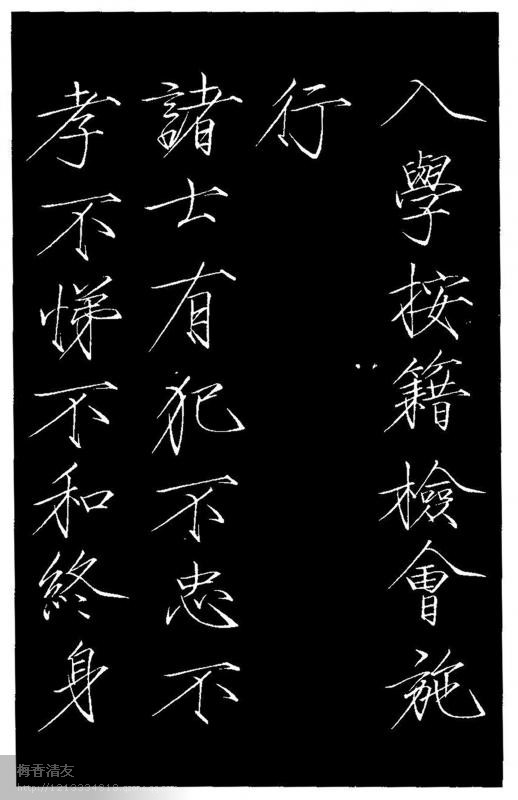 入學按籍檢會施
行
諸士有犯不忠不
孝不悌不和終身
梅香清友